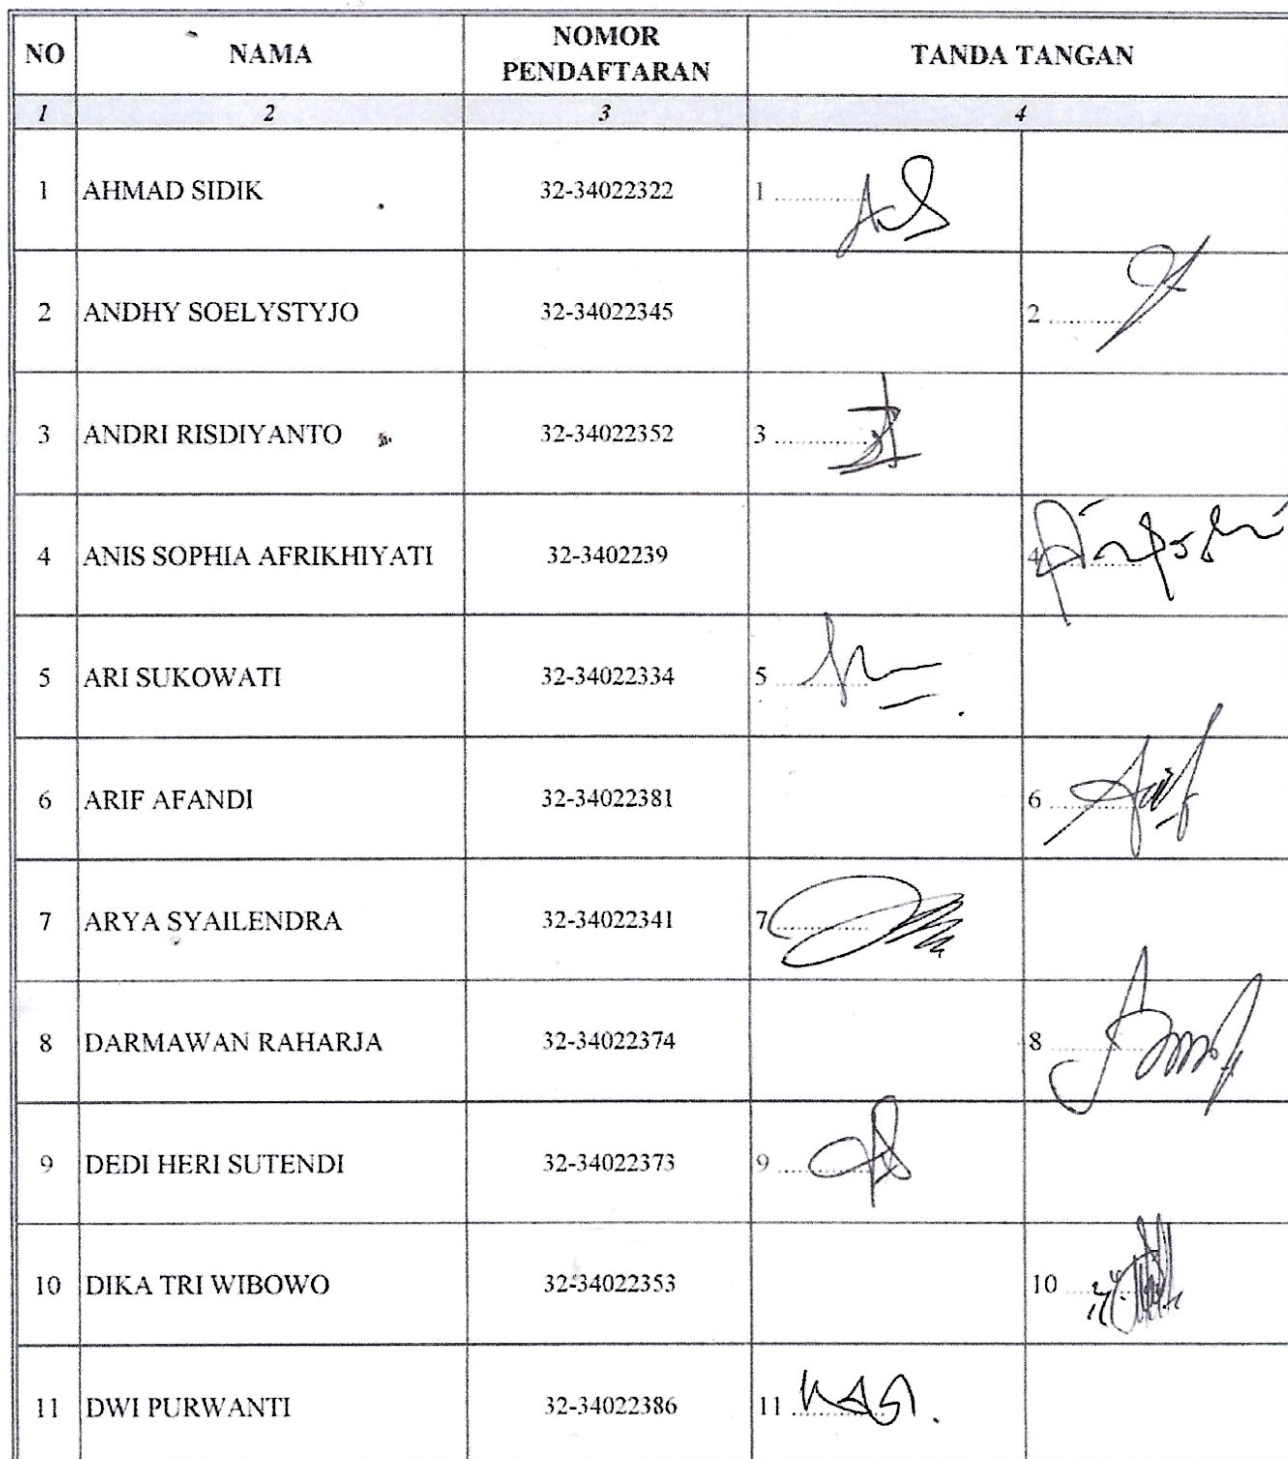 NO NAMA NOMOR PENDAFTARAN TANDA TANGAN
1 2 3 4
1 AHMAD SIDIK 32-34022322 1 ............
2 ANDHY SOELYSTYJO 32-34022345 2 ............
3 ANDRI RISDIYANTO 32-34022352 3 ............
4 ANIS SOPHIA AFRIKHIYATI 32-3402239 4 ............
5 ARI SUKOWATI 32-34022334 5 ............
6 ARIF AFANDI 32-34022381 6 ............
7 ARYA SYAILENDRA 32-34022341 7 ............
8 DARMAWAN RAHARJA 32-34022374 8 ............
9 DEDI HERI SUTENDI 32-34022373 9 ............
10 DIKA TRI WIBOWO 32-34022353 10 ............
11 DWI PURWANTI 32-34022386 11 ............